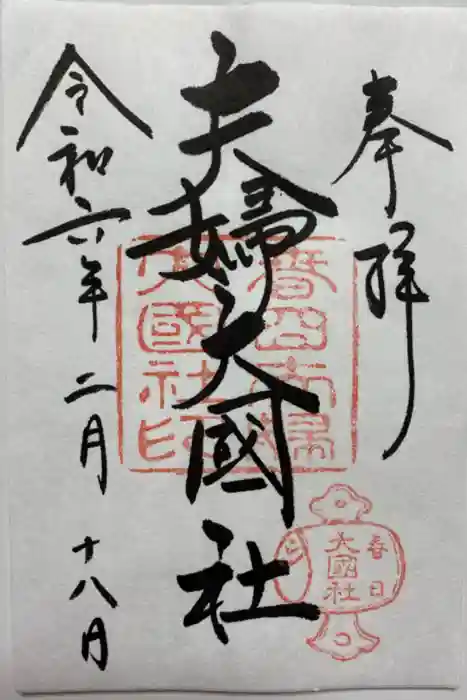 奉拝
夫婦大國社
令和六年二月十八日
春日夫婦
大國社印
春日
大國社